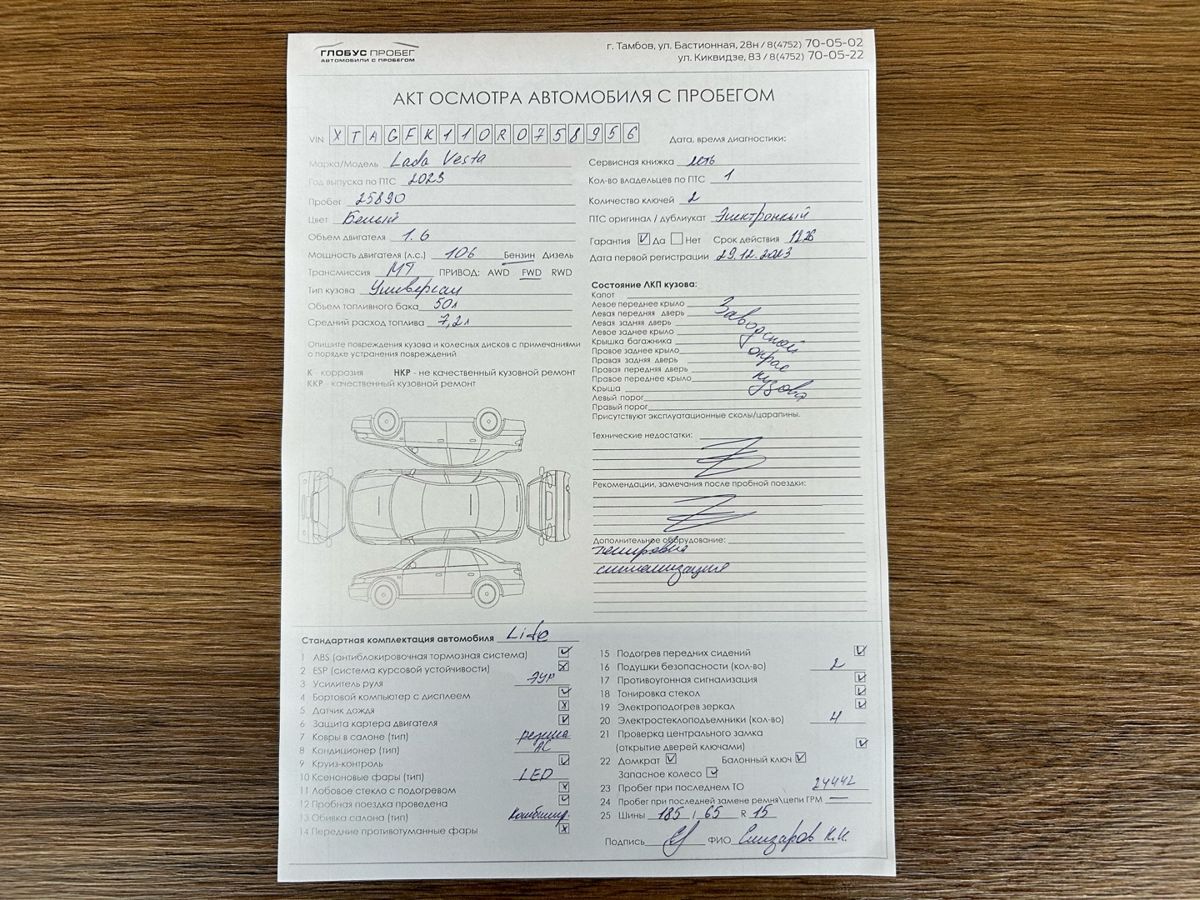 ГЛОБУС ПРОБЕГ
АВТОМОБИЛИ С ПРОБЕГОМ
г. Тамбов, ул. Бастионная, 28н / 8(4752) 70-05-02
ул. Киквидзе, 83 / 8(4752) 70-05-22
АКТ ОСМОТРА АВТОМОБИЛЯ С ПРОБЕГОМ
VIN XTAGFK110R0758956
Дата, время диагностики:
Марка/Модель Lada Vesta
Год выпуска по ПТС 2023
Пробег 25890
Цвет Белый
Объем двигателя 1.6
Мощность двигателя (л.с.) 106 Бензин Дизель
Трансмиссия МТ ПРИВОД: AWD FWD RWD
Тип кузова Универсал
Объем топливного бака 50л
Средний расход топлива 7,2л
Сервисная книжка есть
Кол-во владельцев по ПТС 1
Количество ключей 2
ПТС оригинал / дубликат Электронный
Гарантия Да Нет Срок действия 12.26
Дата первой регистрации 29.12.2023
Опишите повреждения кузова и колесных дисков с примечаниями
о порядке устранения повреждений
К - коррозия НКР - не качественный кузовной ремонт
ККР - качественный кузовной ремонт
Состояние ЛКП кузова:
Капот
Левое переднее крыло
Левая передняя дверь
Левая задняя дверь
Левое заднее крыло
Крышка багажника
Правое заднее крыло
Правая задняя дверь
Правая передняя дверь
Правое переднее крыло
Крыша
Левый порог
Правый порог
Заводской
окрас
кузова
Присутствуют эксплуатационные сколы/царапины.
Технические недостатки:
Рекомендации, замечания после пробной поездки:
Дополнительное оборудование:
тонировка
сигнализация
Стандартная комплектация автомобиля Life
1 ABS (антиблокировочная тормозная система)
2 ESP (система курсовой устойчивости)
3 Усилитель руля ЭУР
4 Бортовой компьютер с дисплеем
5 Датчик дождя
6 Защита картера двигателя
7 Ковры в салоне (тип) резина
8 Кондиционер (тип) AC
9 Круиз-контроль
10 Ксеноновые фары (тип) LED
11 Лобовое стекло с подогревом
12 Пробная поездка проведена
13 Обивка салона (тип) Комбинир.
14 Передние противотуманные фары
15 Подогрев передних сидений
16 Подушки безопасности (кол-во) 2
17 Противоугонная сигнализация
18 Тонировка стекол
19 Электроподогрев зеркал
20 Электростеклоподъемники (кол-во) 4
21 Проверка центрального замка
(открытие дверей ключами)
22 Домкрат Балонный ключ
Запасное колесо
23 Пробег при последнем ТО 24442
24 Пробег при последней замене ремня\цепи ГРМ —
25 Шины 185 / 65 R 15
Подпись ФИО Елизаров К.И.